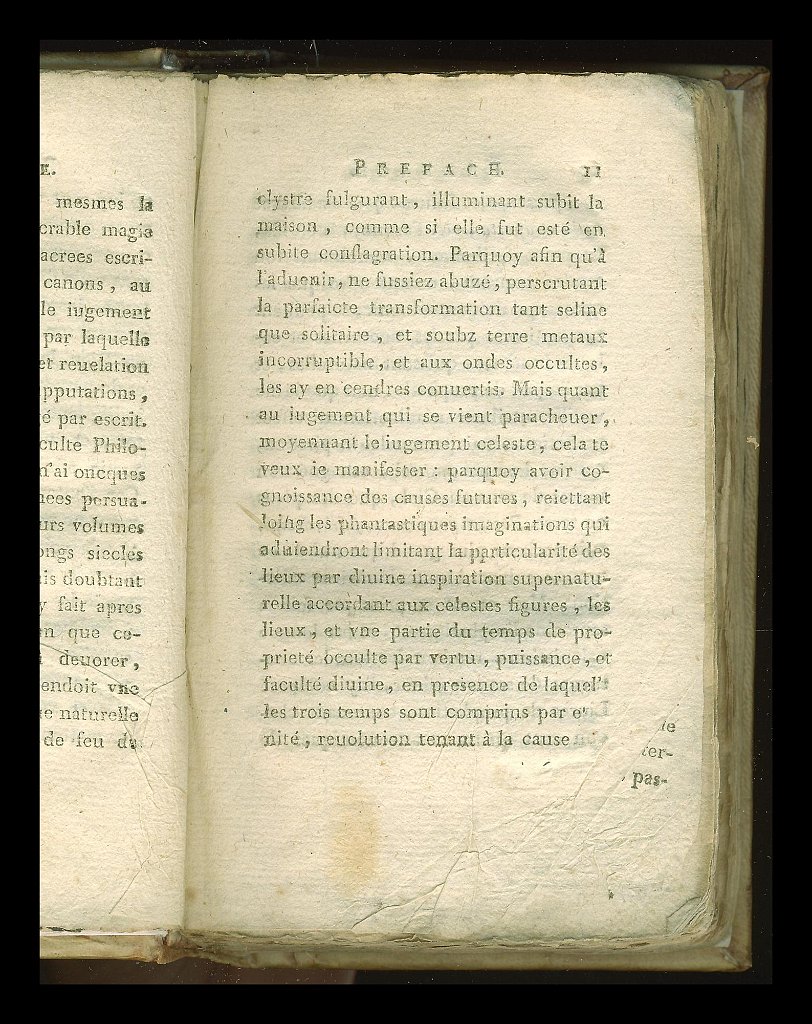 E.
mesmes la
crable magie
acrees escri-
canons, au
le iugement
par laquelle
et reuelation
pputations,
é par escrit.
culte Philo-
n'ai oncques
nees persua-
urs volumes
ongs siecles
is doubtant
y fait apres
n que ce-
i deuorer,
endoit vne
e naturelle
de feu du
PREFACE. 11
clystre fulgurant, illuminant subit la
maison, comme si elle fut esté en
subite conflagration. Parquoy afin qu'à
l'aduenir, ne fussiez abuzé, perscrutant
la parfaicte transformation tant seline
que solitaire, et soubz terre metaux
incorruptible, et aux ondes occultes,
les ay en cendres conuertis. Mais quant
au iugement qui se vient paracheuer,
moyennant le iugement celeste, cela te
veux ie manifester : parquoy avoir co-
gnoissance des causes futures, reiettant
loing les phantastiques imaginations qui
aduiendront limitant la particularité des
lieux par diuine inspiration supernatu-
relle accordant aux celestes figures, les
lieux, et vne partie du temps de pro-
prieté occulte par vertu, puissance, et
faculté diuine, en presence de laquel
les trois temps sont comprins par e
nité, reuolution tenant à la cause
le
ter-
pas-